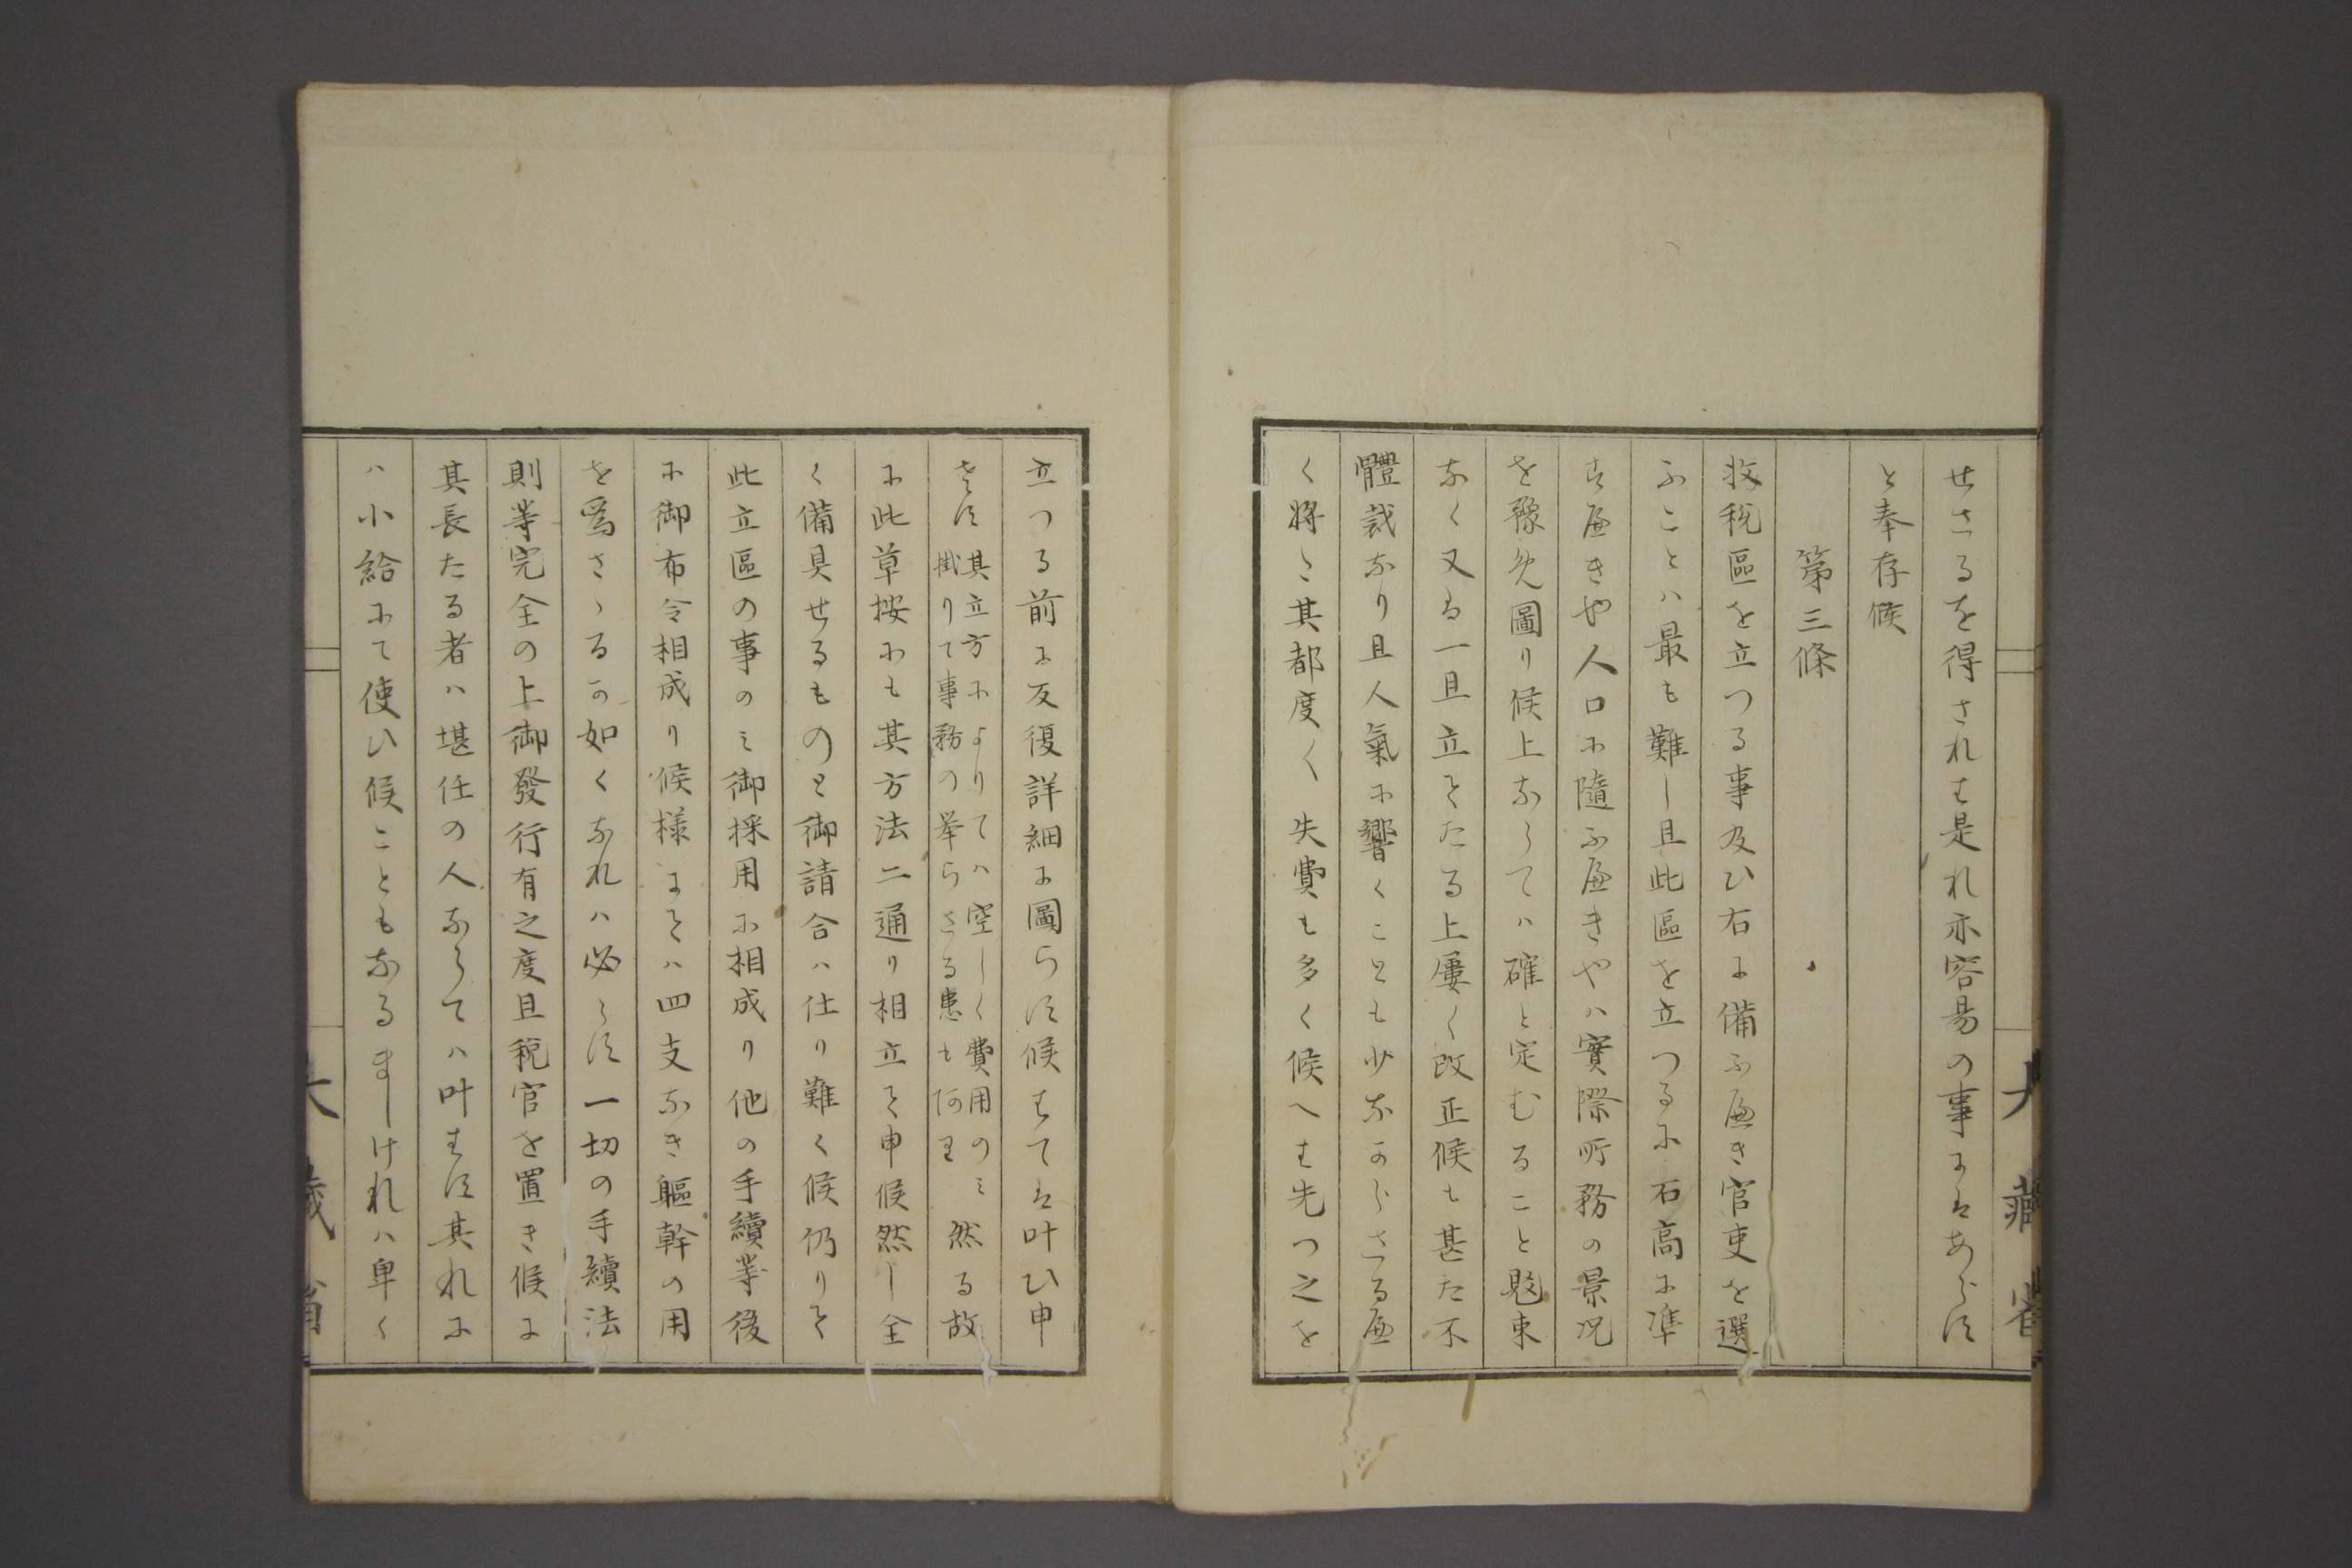 せさるを得されは是れ亦容易の事にはあらす
と奉存候
第三條
收稅區を立つる事及ひ右に備ふへき官吏を選
ふことハ最も難し且此區を立つるに石高に準
すへきや人口に隨ふへきやハ實際所務の景況
を豫め圖り候上ならてハ確と定むること覺束
なく又は一旦立てたる上屢〱改正候も甚た不
體裁なり且人氣に響くことも少なからさるへ
く將た其都度〱失費も多く候へは先つ之を
立つる前に反復詳細に圖らす候はては叶ひ申
さす其立方によりてハ空しく費用のミ掛りて事務の擧らさる患も可有 然る故
に此草按にも其方法二通り相立て申候然し全
く備具せるものと御請合ハ仕り難く候仍りて
此立區の事のミ御採用に相成り他の手續等後
に御布令相成り候樣にてハ四支なき軀幹の用
を爲さゝるか如くなれハ必らす一切の手續法
則等完全の上御發行有之度且稅官を置き候に
其長たる者ハ堪任の人ならてハ叶はす其れに
ハ小給にて使ひ候こともなるましけれハ卑く
大藏省
大藏省